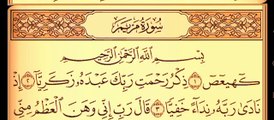 سُورَةُ مَرْيَمَ
بِسْمِ اللَّهِ الرَّحْمَٰنِ الرَّحِيمِ
كٓهيعٓصٓ ١ ذِكْرُ رَحْمَتِ رَبِّكَ عَبْدَهُۥ زَكَرِيَّآ ٢ إِذْ
نَادَىٰ رَبَّهُۥ نِدَآءً خَفِيًّا ٣ قَالَ رَبِّ إِنِّى وَهَنَ ٱلْعَظْمُ مِنِّى